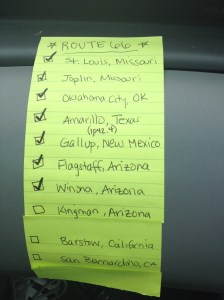 * ROUTE 66 *
St. Louis, Missouri
Joplin, Missouri
Oklahoma City, OK
Amarillo, Texas
Gallup, New Mexico
Flagstaff, Arizona
Winona, Arizona
Kingman, Arizona
Barstow, California
San Bernardino, CA